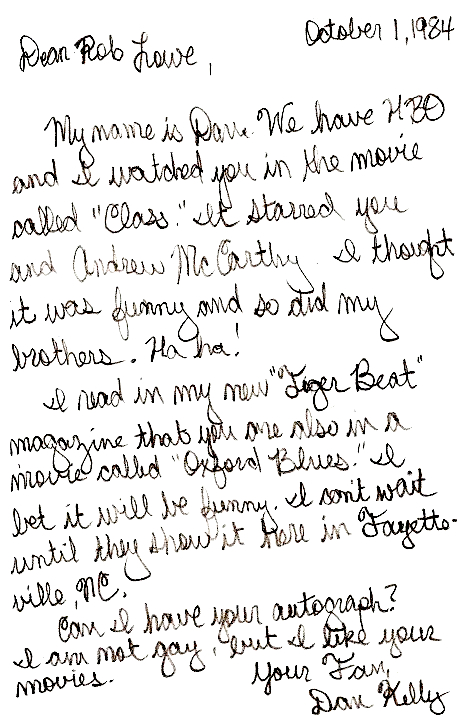 October 1, 1984
Dear Rob Lowe,
My name is Dan. We have HBO
and I watched you in the movie
called "Class." It starred you
and Andrew McCarthy. I thought
it was funny and so did my
brothers. Ha ha!
I read in my new "Tiger Beat"
magazine that you are also in a
movie called "Oxford Blues." I
bet it will be funny. I can't wait
until they show it here in Fayette-
ville, NC.
Can I have your autograph?
I am not gay, but I like your
movies.
Your Fan,
Dan Kelly